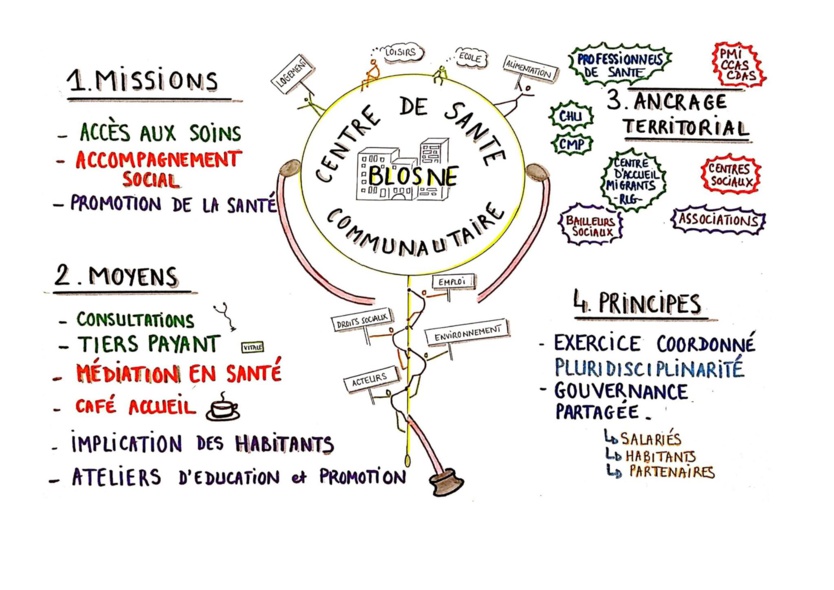 1. MISSIONS
- ACCÈS AUX SOINS
- ACCOMPAGNEMENT
SOCIAL
- PROMOTION DE LA SANTÉ
2. MOYENS
- CONSULTATIONS
- TIERS PAYANT
VITALE
- MÉDIATION EN SANTÉ
- CAFÉ ACCUEIL
- IMPLICATION DES HABITANTS
- ATELIERS D'EDUCATION et PROMOTION
LOGEMENT
LOISIRS
ECOLE
ALIMENTATION
CENTRE DE SANTE
BLOSNE
COMMUNAUTAIRE
EMPLOI
DROITS SOCIAUX
ENVIRONNEMENT
ACTEURS
PROFESSIONNELS
DE SANTE
PMI
CCAS
CDAS
3. ANCRAGE
TERRITORIAL
CHU
CMP
CENTRE
D'ACCUEIL
MIGRANTS
-RLG-
CENTRES
SOCIAUX
BAILLEURS
SOCIAUX
ASSOCIATIONS
4. PRINCIPES
- EXERCICE COORDONNÉ
PLURIDISCIPLINARITÉ
- GOUVERNANCE
PARTAGÉE.
↳ SALARIÉS
↳ HABITANTS
↳ PARTENAIRES